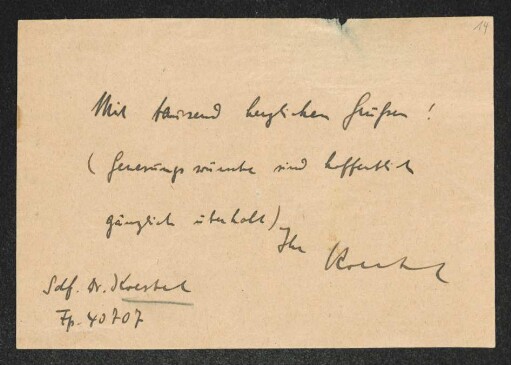 14
Mit tausend herzlichen Grüßen!
(Genesungswünsche sind hoffentlich
gänzlich überholt)
Ihr
Sdf. Dr.
Fp. 40707